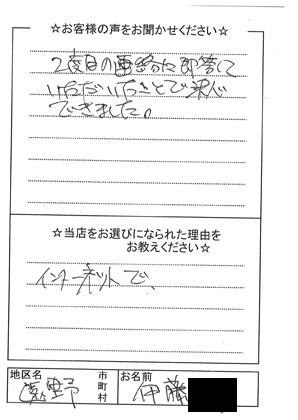 ☆お客様の声をお聞かせください☆
2度目の連絡に即答して
いただいたことで決心
できました。
☆当店をお選びになられた理由を
お教えください☆
インターネットで、
地区名
野
市
町
村
お名前
伊藤